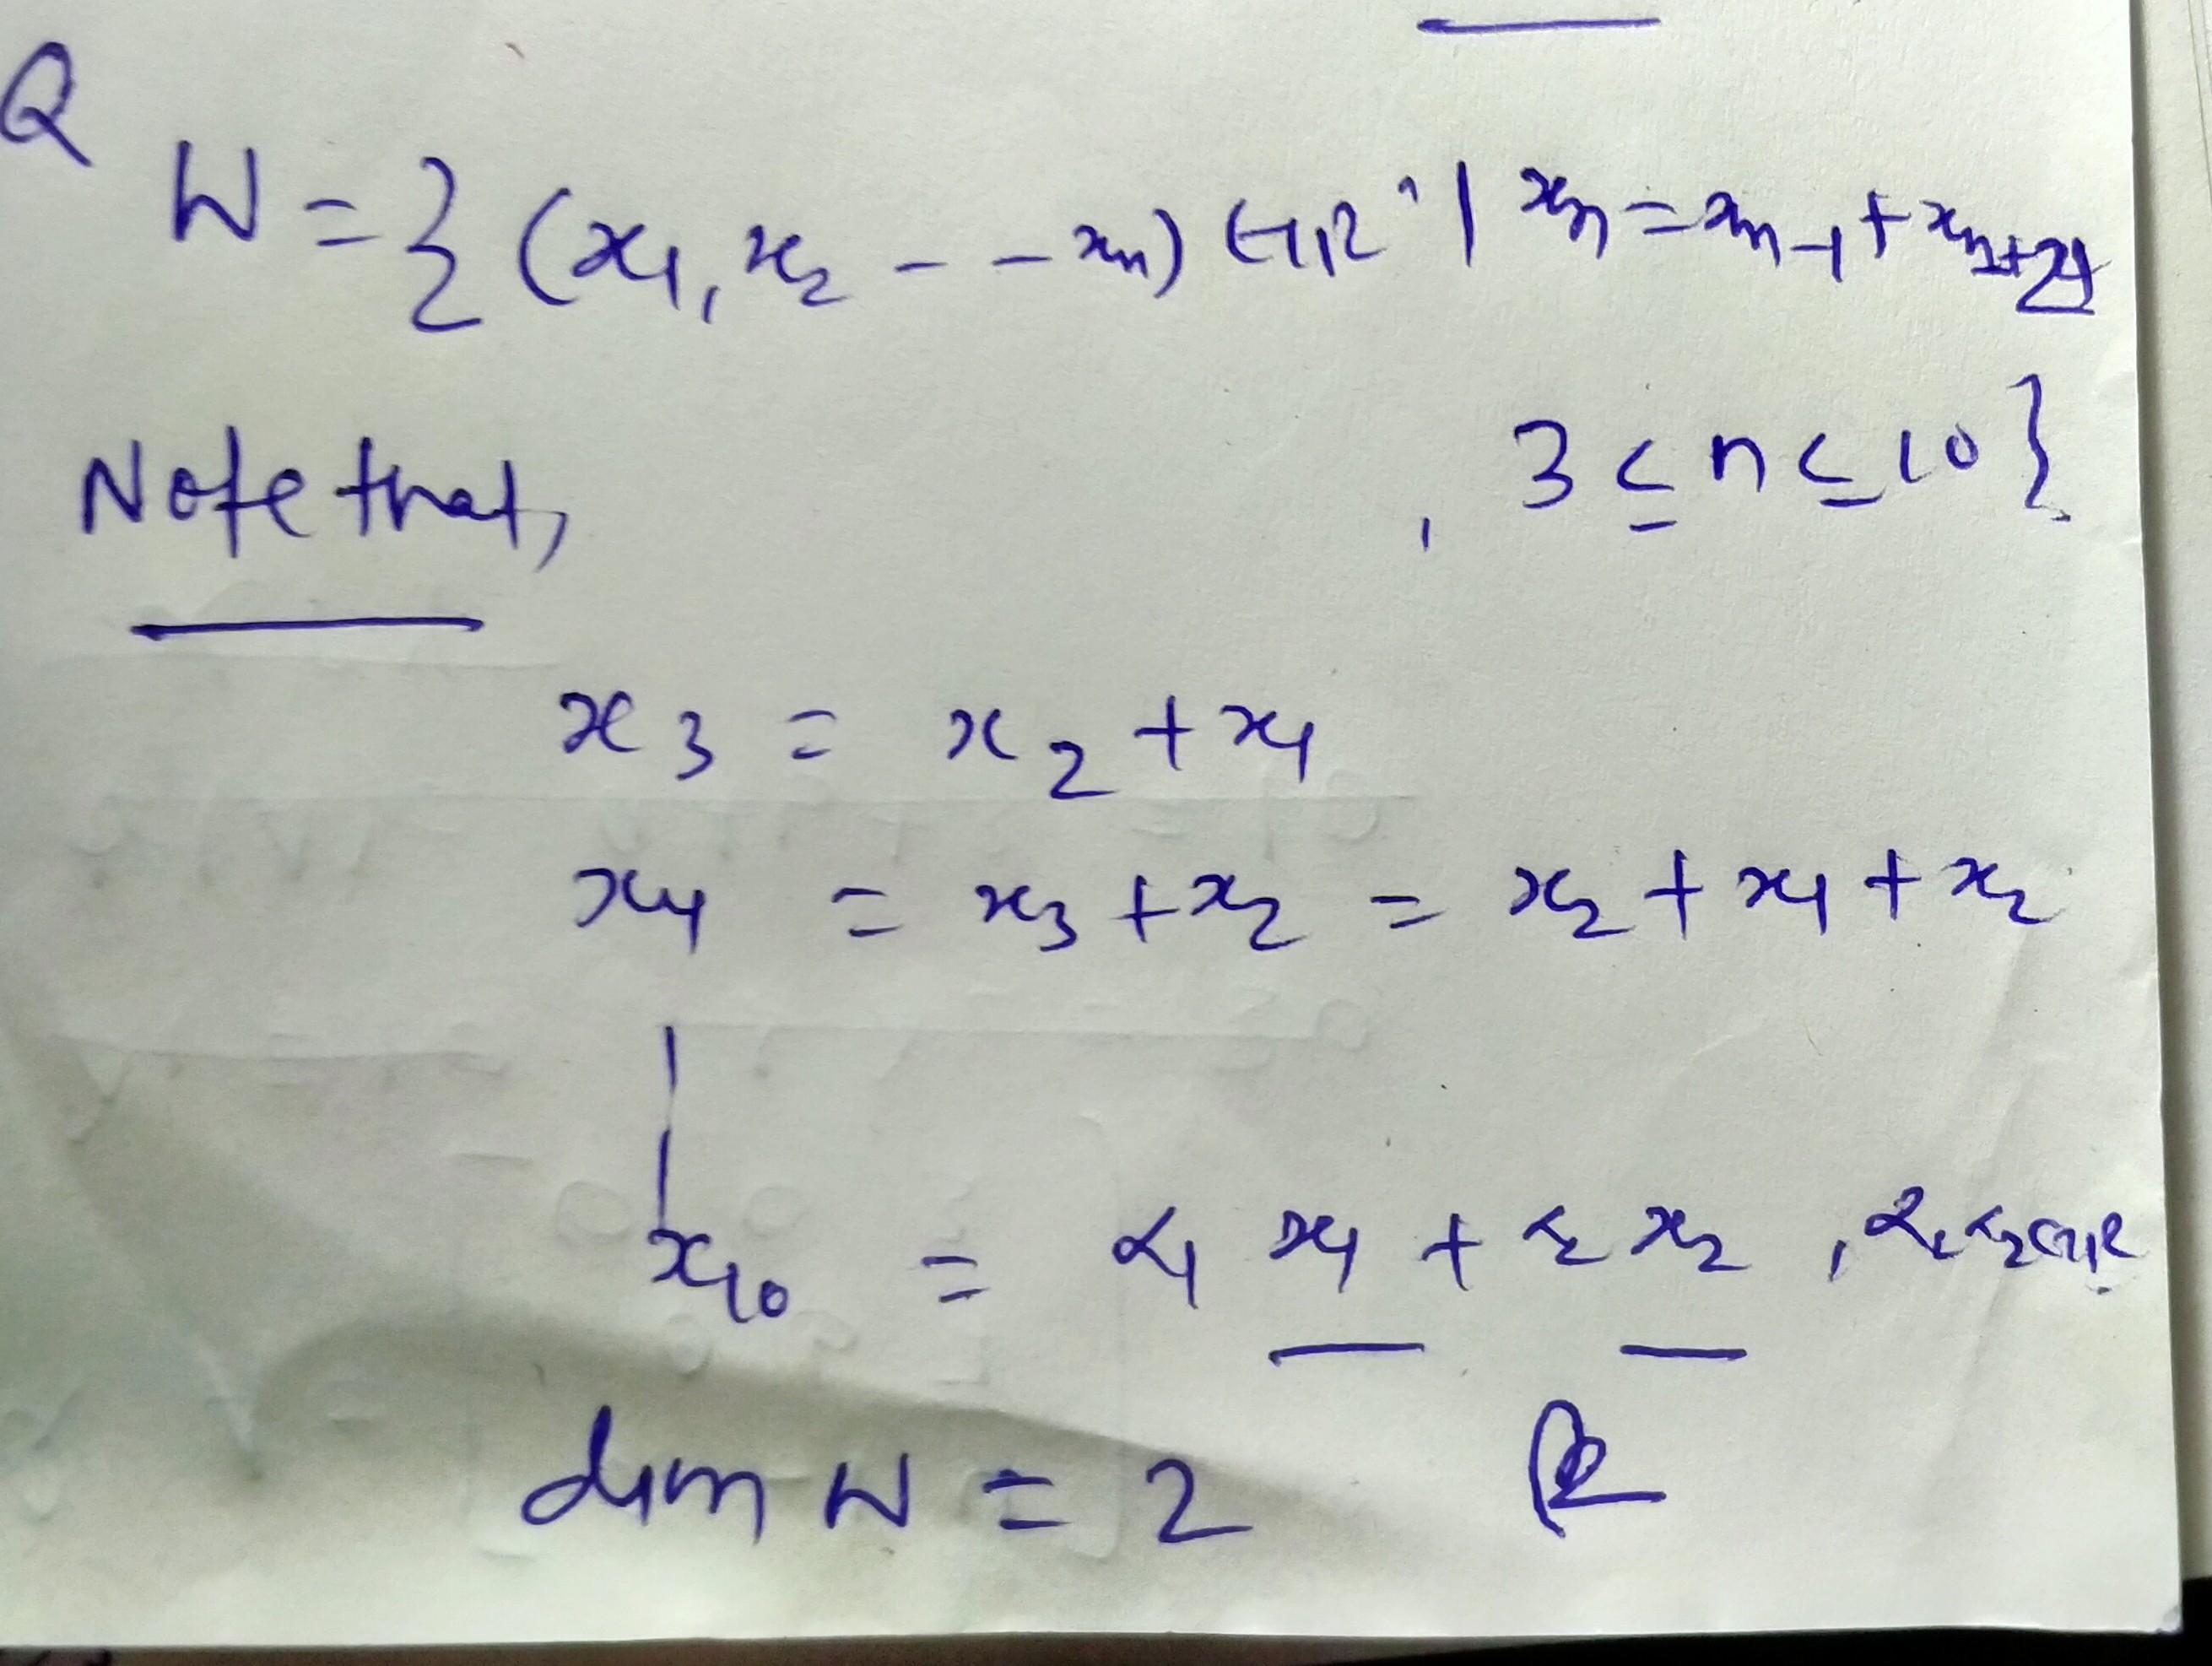 Q
W = { (x₁, x₂ - - xₙ) ∈ ℝ | xₙ = xₙ₋₁ +
, 3 ≤ n ≤ 10 }
Note that,
x₃ = x₂ + x₁
x₄ = x₃ + x₂ = x₂ + x₁ + x₂
x₁₀ = α₁ x₁ + α₂ x₂ , α₁ α₂ ∈ ℝ
dim W = 2